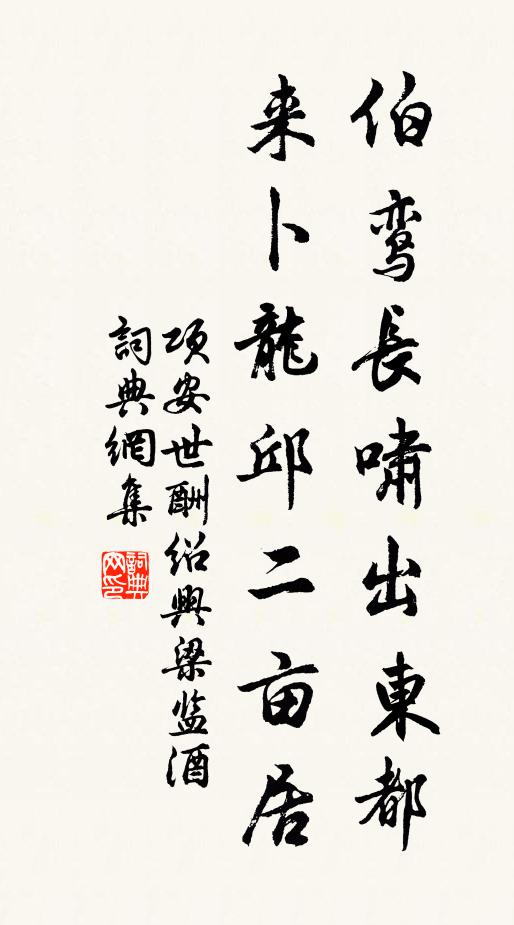 伯鸾長嘯出東都
来卜龍邱二亩居
项安世酬绍興梁监酒
詞典網集
詞典网印